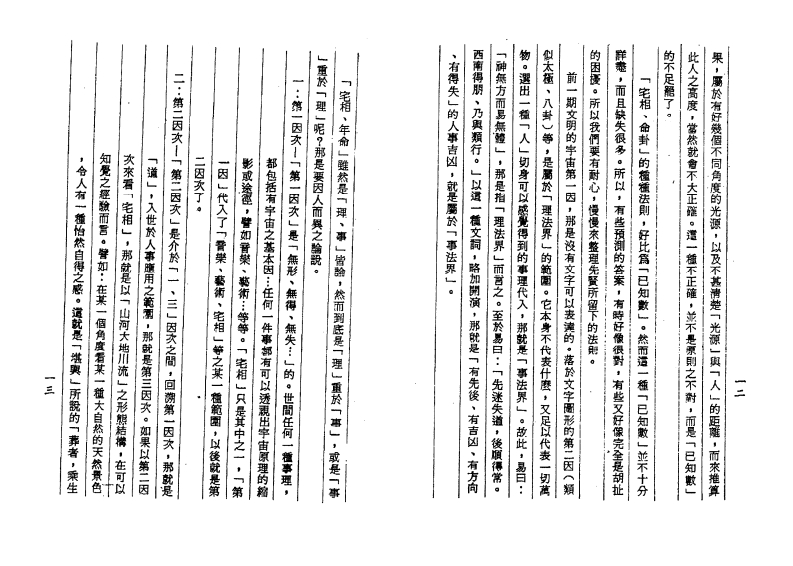 果，屬於有好幾個不同角度的光源，以及不甚清楚「光源」與「人」的距離，而來推算
此人之高度，當然就會不大正確。這一種不正確，並不是原則之不對，而是「已知數」
的不足罷了。
「宅相、命卦」的種種法則，好比爲「已知數」。然而這一種「已知數」並不十分
詳盡，而且缺失很多。所以，有些預測的答案，有時好像很對，有些又好像完全是胡扯
的困擾。所以我們要有耐心，慢慢來整理先賢所留下的法則。
前一期文明的宇宙第一因，那是沒有文字可以表達的。落於文字圖形的第二因（類
似太極、八卦）等，是屬於「理法界」的範圍。它本身不代表什麽，又足以代表一切萬
物。選出一種「人」切身可以感覺得到的事理代入，那就是「事法界」。故此，易曰：
「神無方而易無體」，那是指「理法界」而言之。至於易曰：「先迷失道，後順得常。
西南得朋、乃與類行。」以這一種文詞，略加開演，那就是「有先後、有吉凶、有方向
、有得失」的人事吉凶，就是屬於「事法界」。
一二
「宅相、年命」雖然是「理、事」皆論，然而到底是「理」重於「事」，或是「事
」重於「理」呢？那是要因人而異之論說。
一：第一因次—「第一因次」是「無形、無得、無失…」的。世間任何一種事理，
都包括有宇宙之基本因…任何一件事都有可以透視出宇宙原理的縮
影或途徑，譬如音樂、藝術…等等。「宅相」只是其中之一，「第
一因」代入了「音樂、藝術、宅相」等之某一種範圍，以後就是第
二因次了。
二：第二因次—「第二因次」是介於「一、三」因次之間，回溯第一因次，那就是
「道」，入世於人事應用之範圍，那就是第三因次。如果以第二因
次來看「宅相」，那就是以「山河大地川流」之形態結構，在可以
知覺之經驗而言。譬如：在某一個角度看某一種大自然的天然景色
，令人有一種怡然自得之感。這就是「堪輿」所說的「葬者，乘生
一三